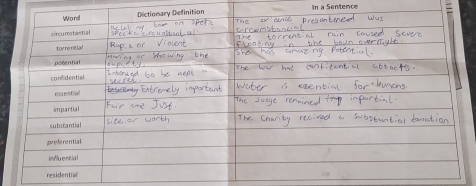 Word Dictionary Definition In a Sentence
circumstantial
The evidence presentened was
circumstancial
torrential Rapid or Violent
The torrential rain caused severe
flooting in the town overnight.
potential Having or showing the
capacity
She has amazing Potential.
confidential Intened to be kept
secret
The had confidential
essential Extremely important Water is essential for humans
impartial Fair and Just The Judge remained impartial.
substantial size or worth The Charity recived a substantial donation
preferential
influential
residential